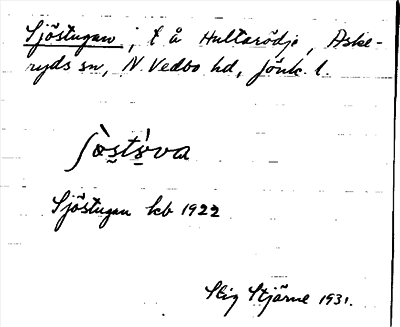 Sjöstugan, t å Hultarödje, Aske-
ryds sn, N. Vedbo hd, Jönk. l.
Sjöstugan kb 1922
Stig Stjärne 1931.